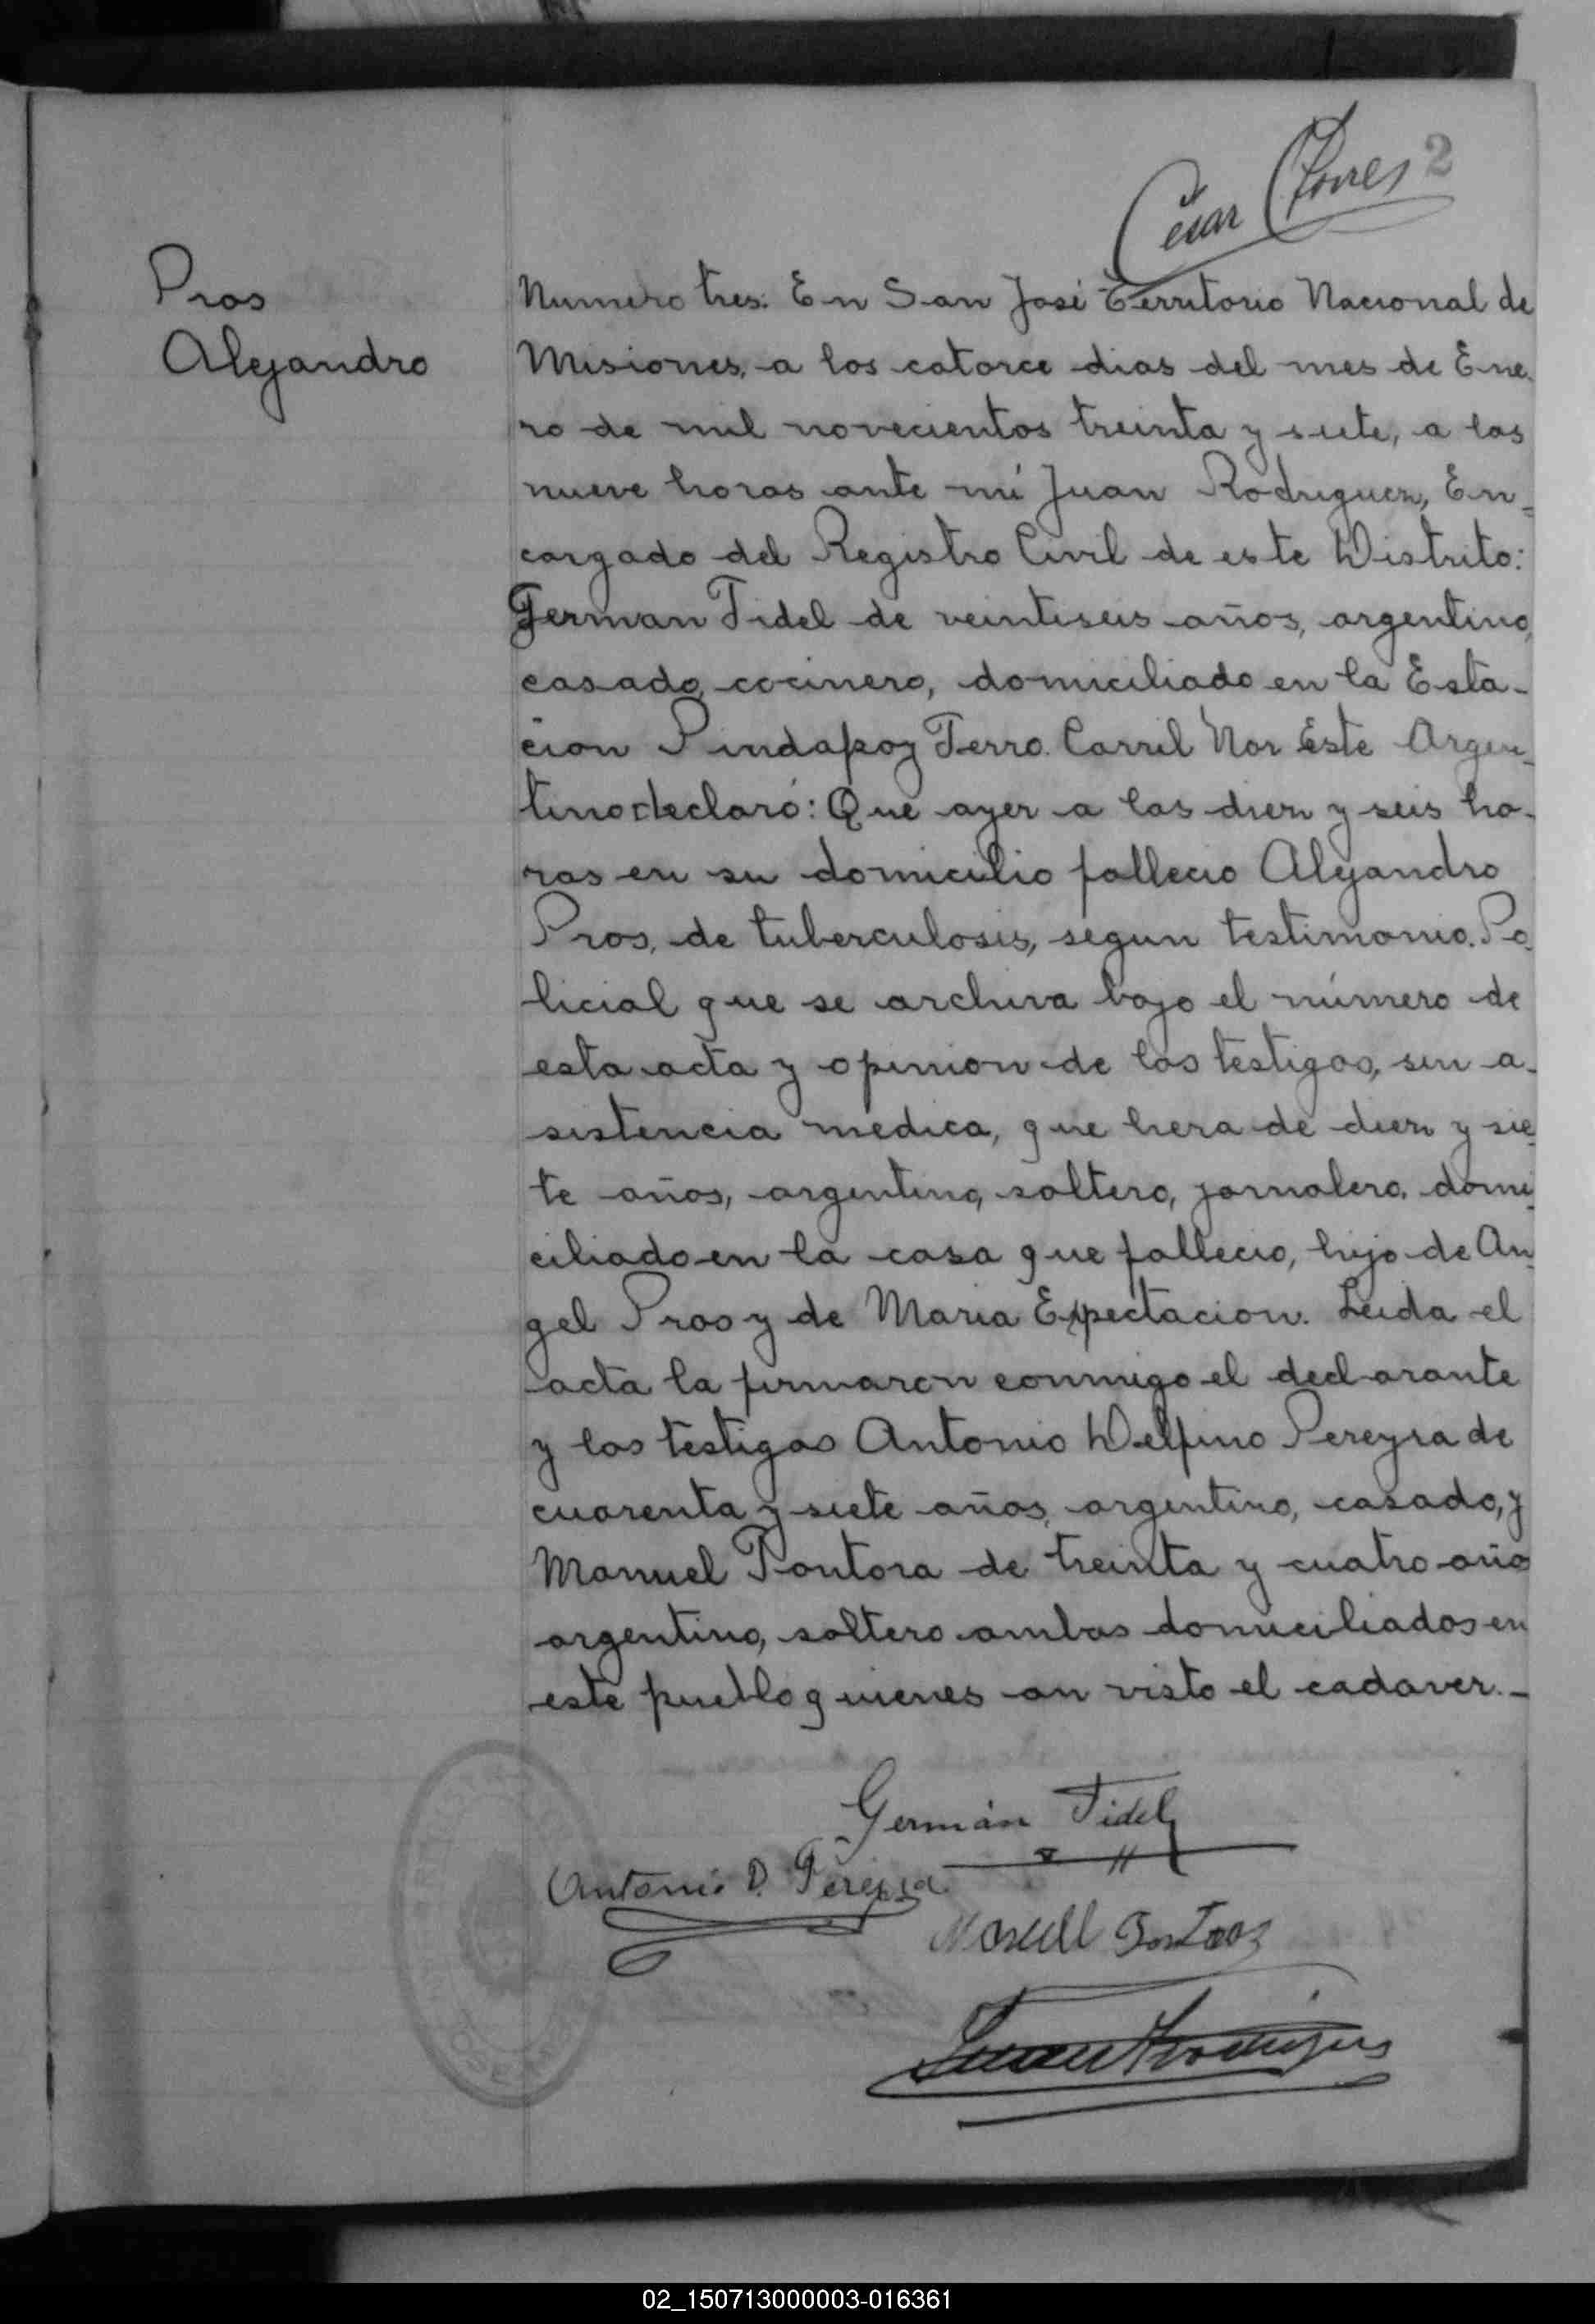 César Flores 2
Pros
Alejandro
Numero tres. En San José Territorio Nacional de
Misiones, a los catorce dias del mes de Ene-
ro de mil novecientos treinta y siete, a las
nueve horas ante mi Juan Rodriguez, En=
cargado del Registro Civil de este Distrito:
German Fidel de veintiseis años, argentino,
casado, cocinero, domiciliado en la Esta-
cion Pindapoy Ferro Carril Nor Este Argen-
tino declaró: Que ayer a las diez y seis ho-
ras en su domicilio fallecio Alejandro
Pros, de tuberculosis, segun testimonio Po-
licial que se archiva bajo el número de
esta acta y opinion de los testigos, sin a-
sistencia medica, que hera de diez y sie-
te años, argentino, soltero, jornalero, domi-
ciliado en la casa que fallecio, hijo de An-
gel Pros y de Maria Expectacion. Leida el
acta la firmaron conmigo el declarante
y los testigos Antonio Delfino Pereyra de
cuarenta y siete años, argentino, casado, y
Manuel Fontora de treinta y cuatro año
argentino, soltero ambos domiciliados en
este pueblo quienes an visto el cadaver.-
Germán Fidel
Antonio D. Pereyra
Juan Rodriguez
02_150713000003-016361